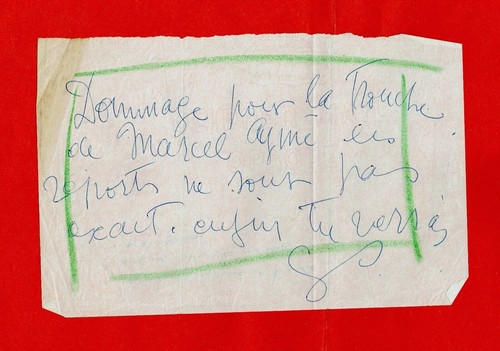 Dommage pour la Tronche
de Marcel Aymé les
reports ne sont pas
exact. enfin tu verras